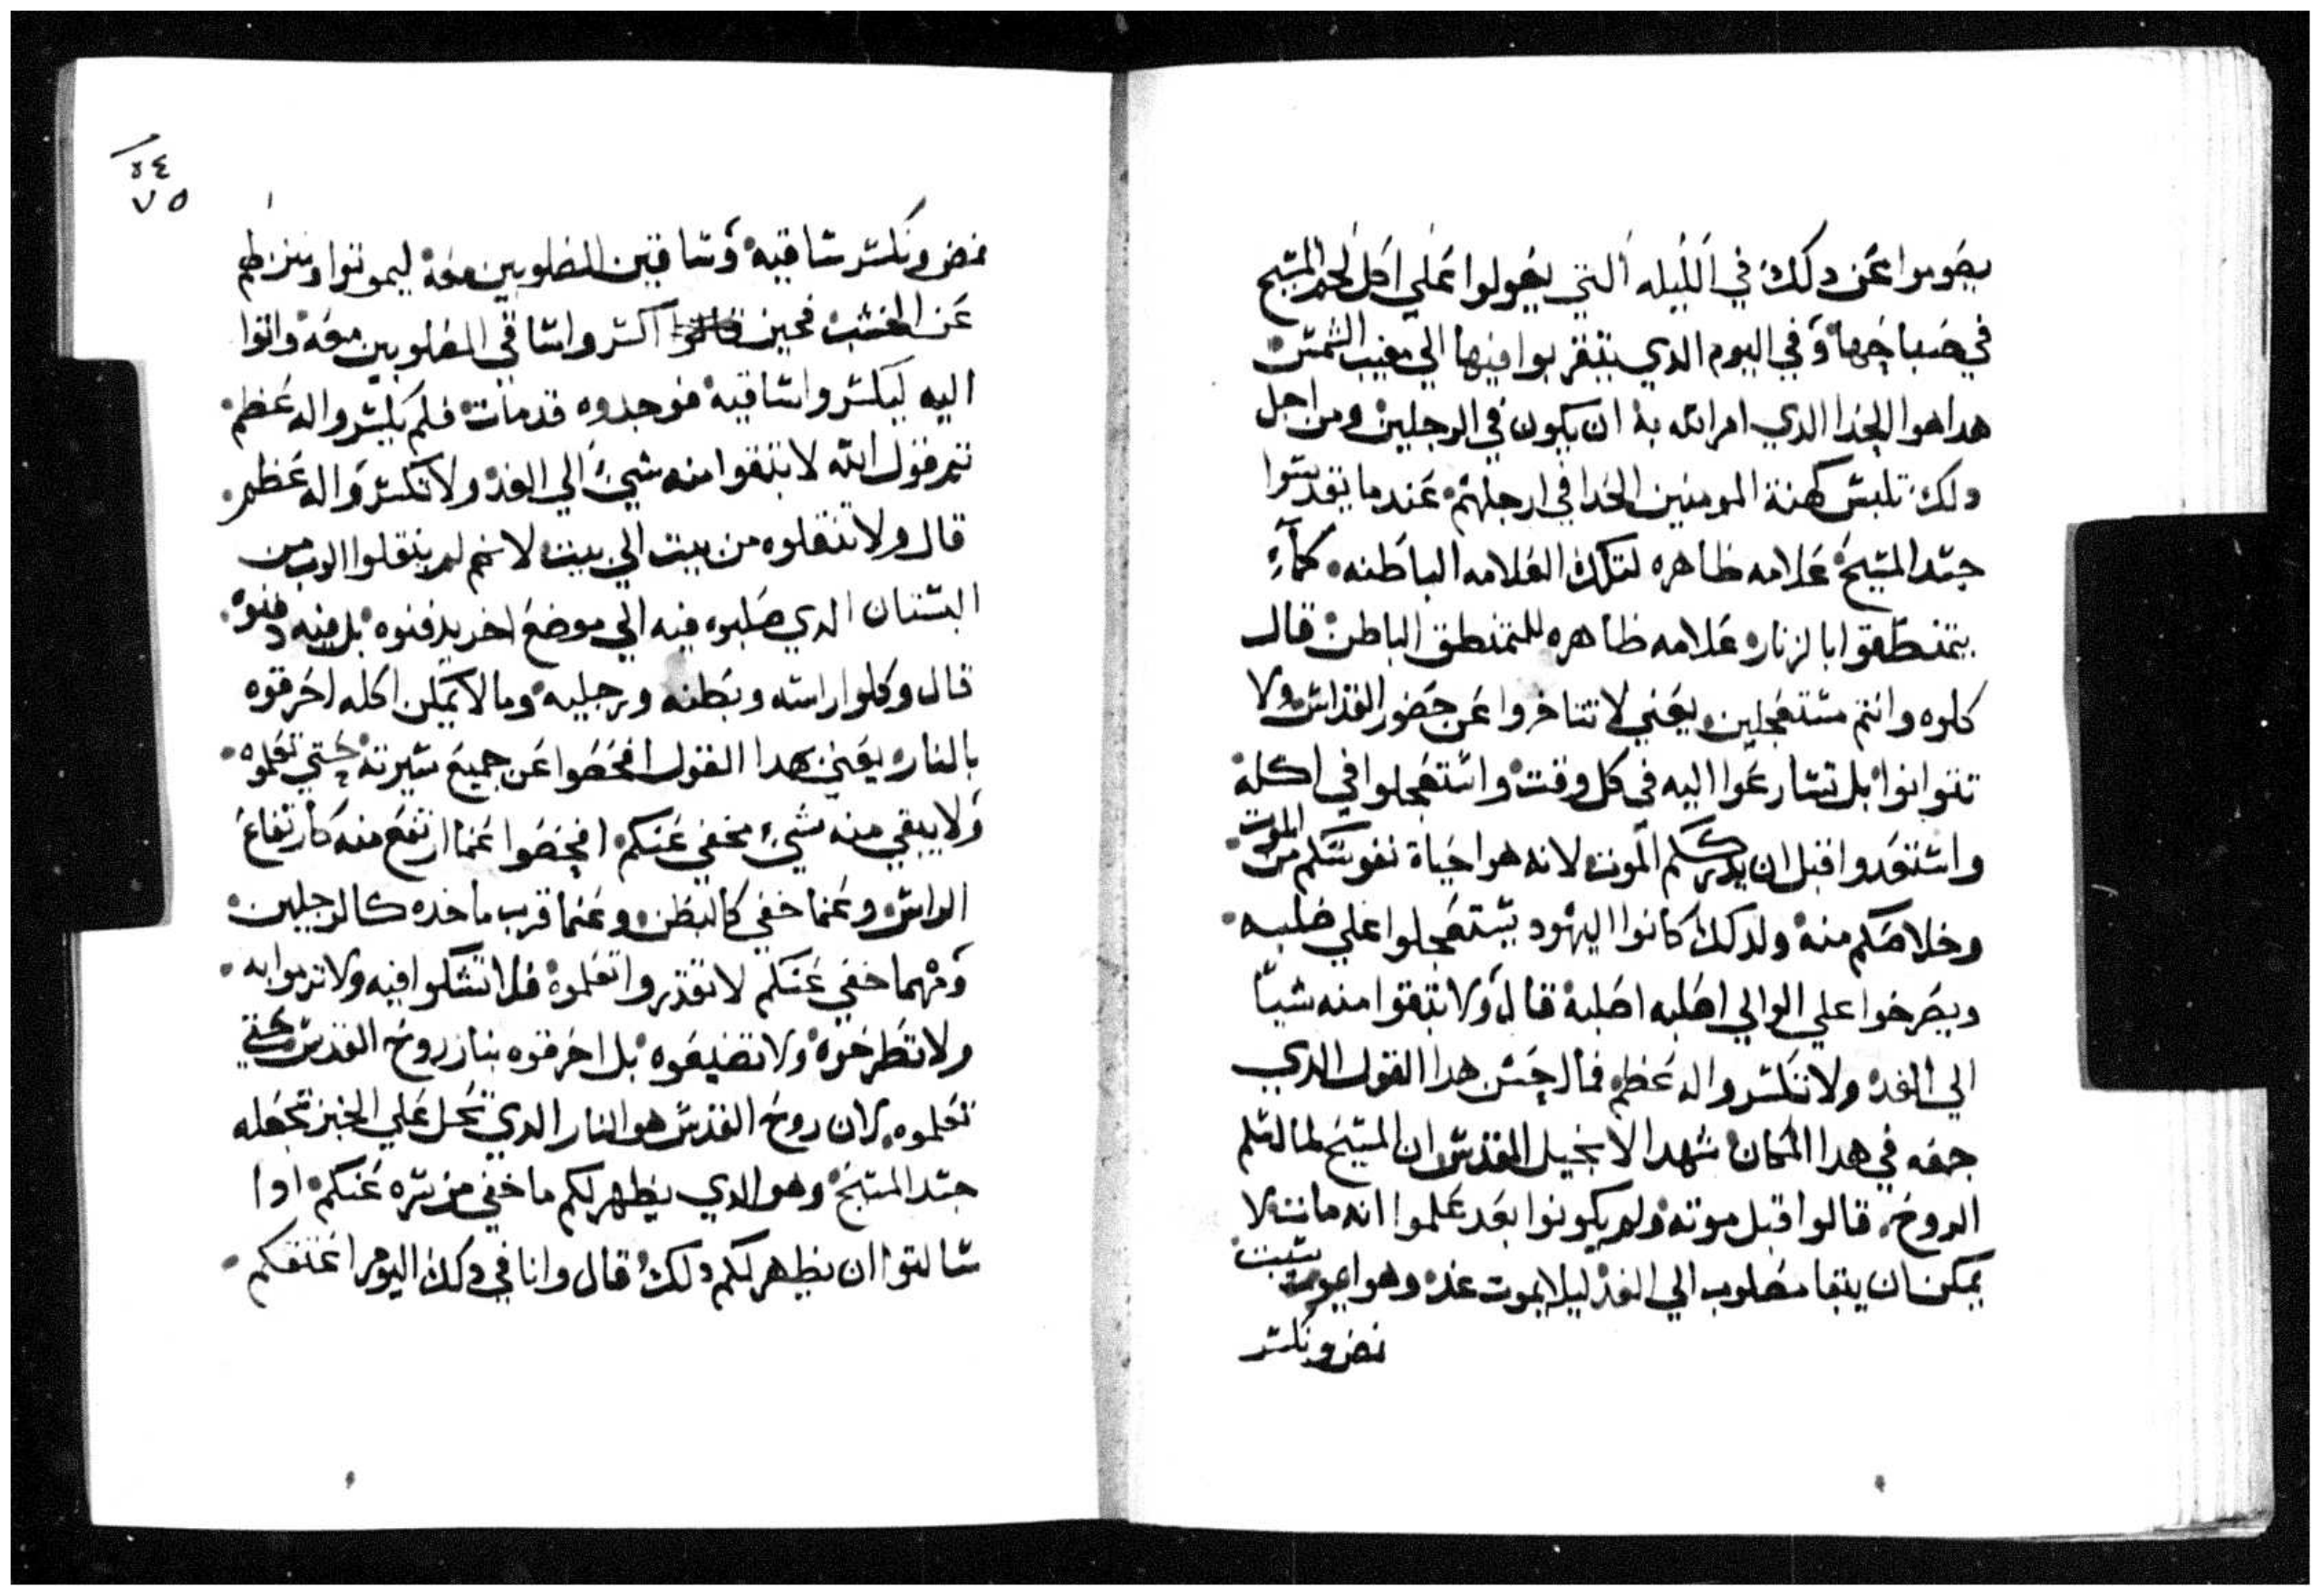 يصوموا عن دلك في الليله التي يعولوا علي اكل لحم المسيح
في صباحها وفي اليوم الدي يتقربوا فيها الي مغيب الشمس
هدا هوا الحدا الدي امر الله به ان يكون في الرجلين ومن اجل
دلك تلبس كهنة المومنين الحدا في ارجلهم عندما يقدسوا
جسد المسيح علامه ظاهره لتلك العلامه الباطنه كما
يتمنطقوا بالزنار علامه ظاهره للتمنطق الباطن قال
كلوه وانتم مستعجلين يعني لا تتاخروا عن حضور القداس ولا
تتوانوا بل تسارعوا اليه في كل وقت واستعجلوا في اكله
واستعدوا قبل ان يدرككم الموت لانه هوا حياة نفوسكم من الموت
وخلاصكم منه ولدلك كانوا اليهود يستعجلوا علي صلبه
ويصرخوا علي الوالي اصلبه اصلبه قال ولا تبقوا منه شيا
الي الغد ولا تكسروا له عظم فما احسن هدا القول الدي
جمعه في هدا المكان شهد الانجيل المقدس ان المسيح لما اسلم
الروح قالوا قبل موته ولم يكونوا بعد علموا انه مات لا
يمكن ان يبقا مصلوب الي الغد ليلا يموت غد وهوا يوم سبت
نمض ونكسر
نمض ونكسر ساقيه وساقين المصلوبين معه ليموتوا وننزلهم
عن الخشب فحين كسروا ساقي المصلوبين معه واتوا
اليه ليكسروا ساقيه فوجدوه قد مات فلم يكسروا له عظم
تم قول الله لا تبقوا منه شي الي الغد ولا تكسروا له عظم
قال ولا تنقلوه من بيت الي بيت لانهم لم ينقلوا الرب من
البستان الدي صلبوه فيه الي موضع اخر يدفنوه بل فيه دفنوه
قال وكلوا راسه وبطنه ورجليه وما لا يمكن اكله احرقوه
بالنار يعني هدا القول افحصوا عن جميع سيرته حتي تعلموه
ولا يبقي منه شي مخفي عنكم افحصوا عما ارتفع منه كارتفاع
الراس وعما خفي كالبطن وعما قرب ماخده كالرجلين
ومهما خفي عنكم لا تقدروا تعلموه فلا تشكوا فيه ولا ترموا به
ولا تطرحوه ولا تضيعوه بل احرقوه بنار روح القدس حتي
تعلموه لان روح القدس هو النار الدي تحل علي الخبز تجعله
جسد المسيح وهو الدي يظهر لكم ما خفي من سره عنكم ادا
سالتوا ان يظهر لكم دلك قال وانا في دلك اليوم اعتقكم
٥٤
٧٥